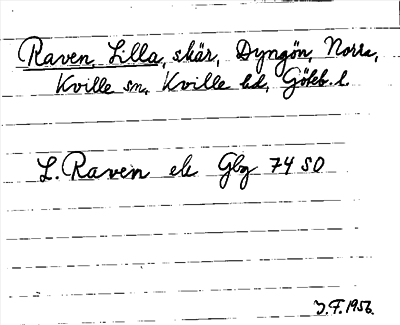 Raven, Lilla, skär, Dyngön, Norra,
Kville sn, Kville hd, Göteb. l.
L. Raven ek Gbg 74 SO
J.F. 1956.